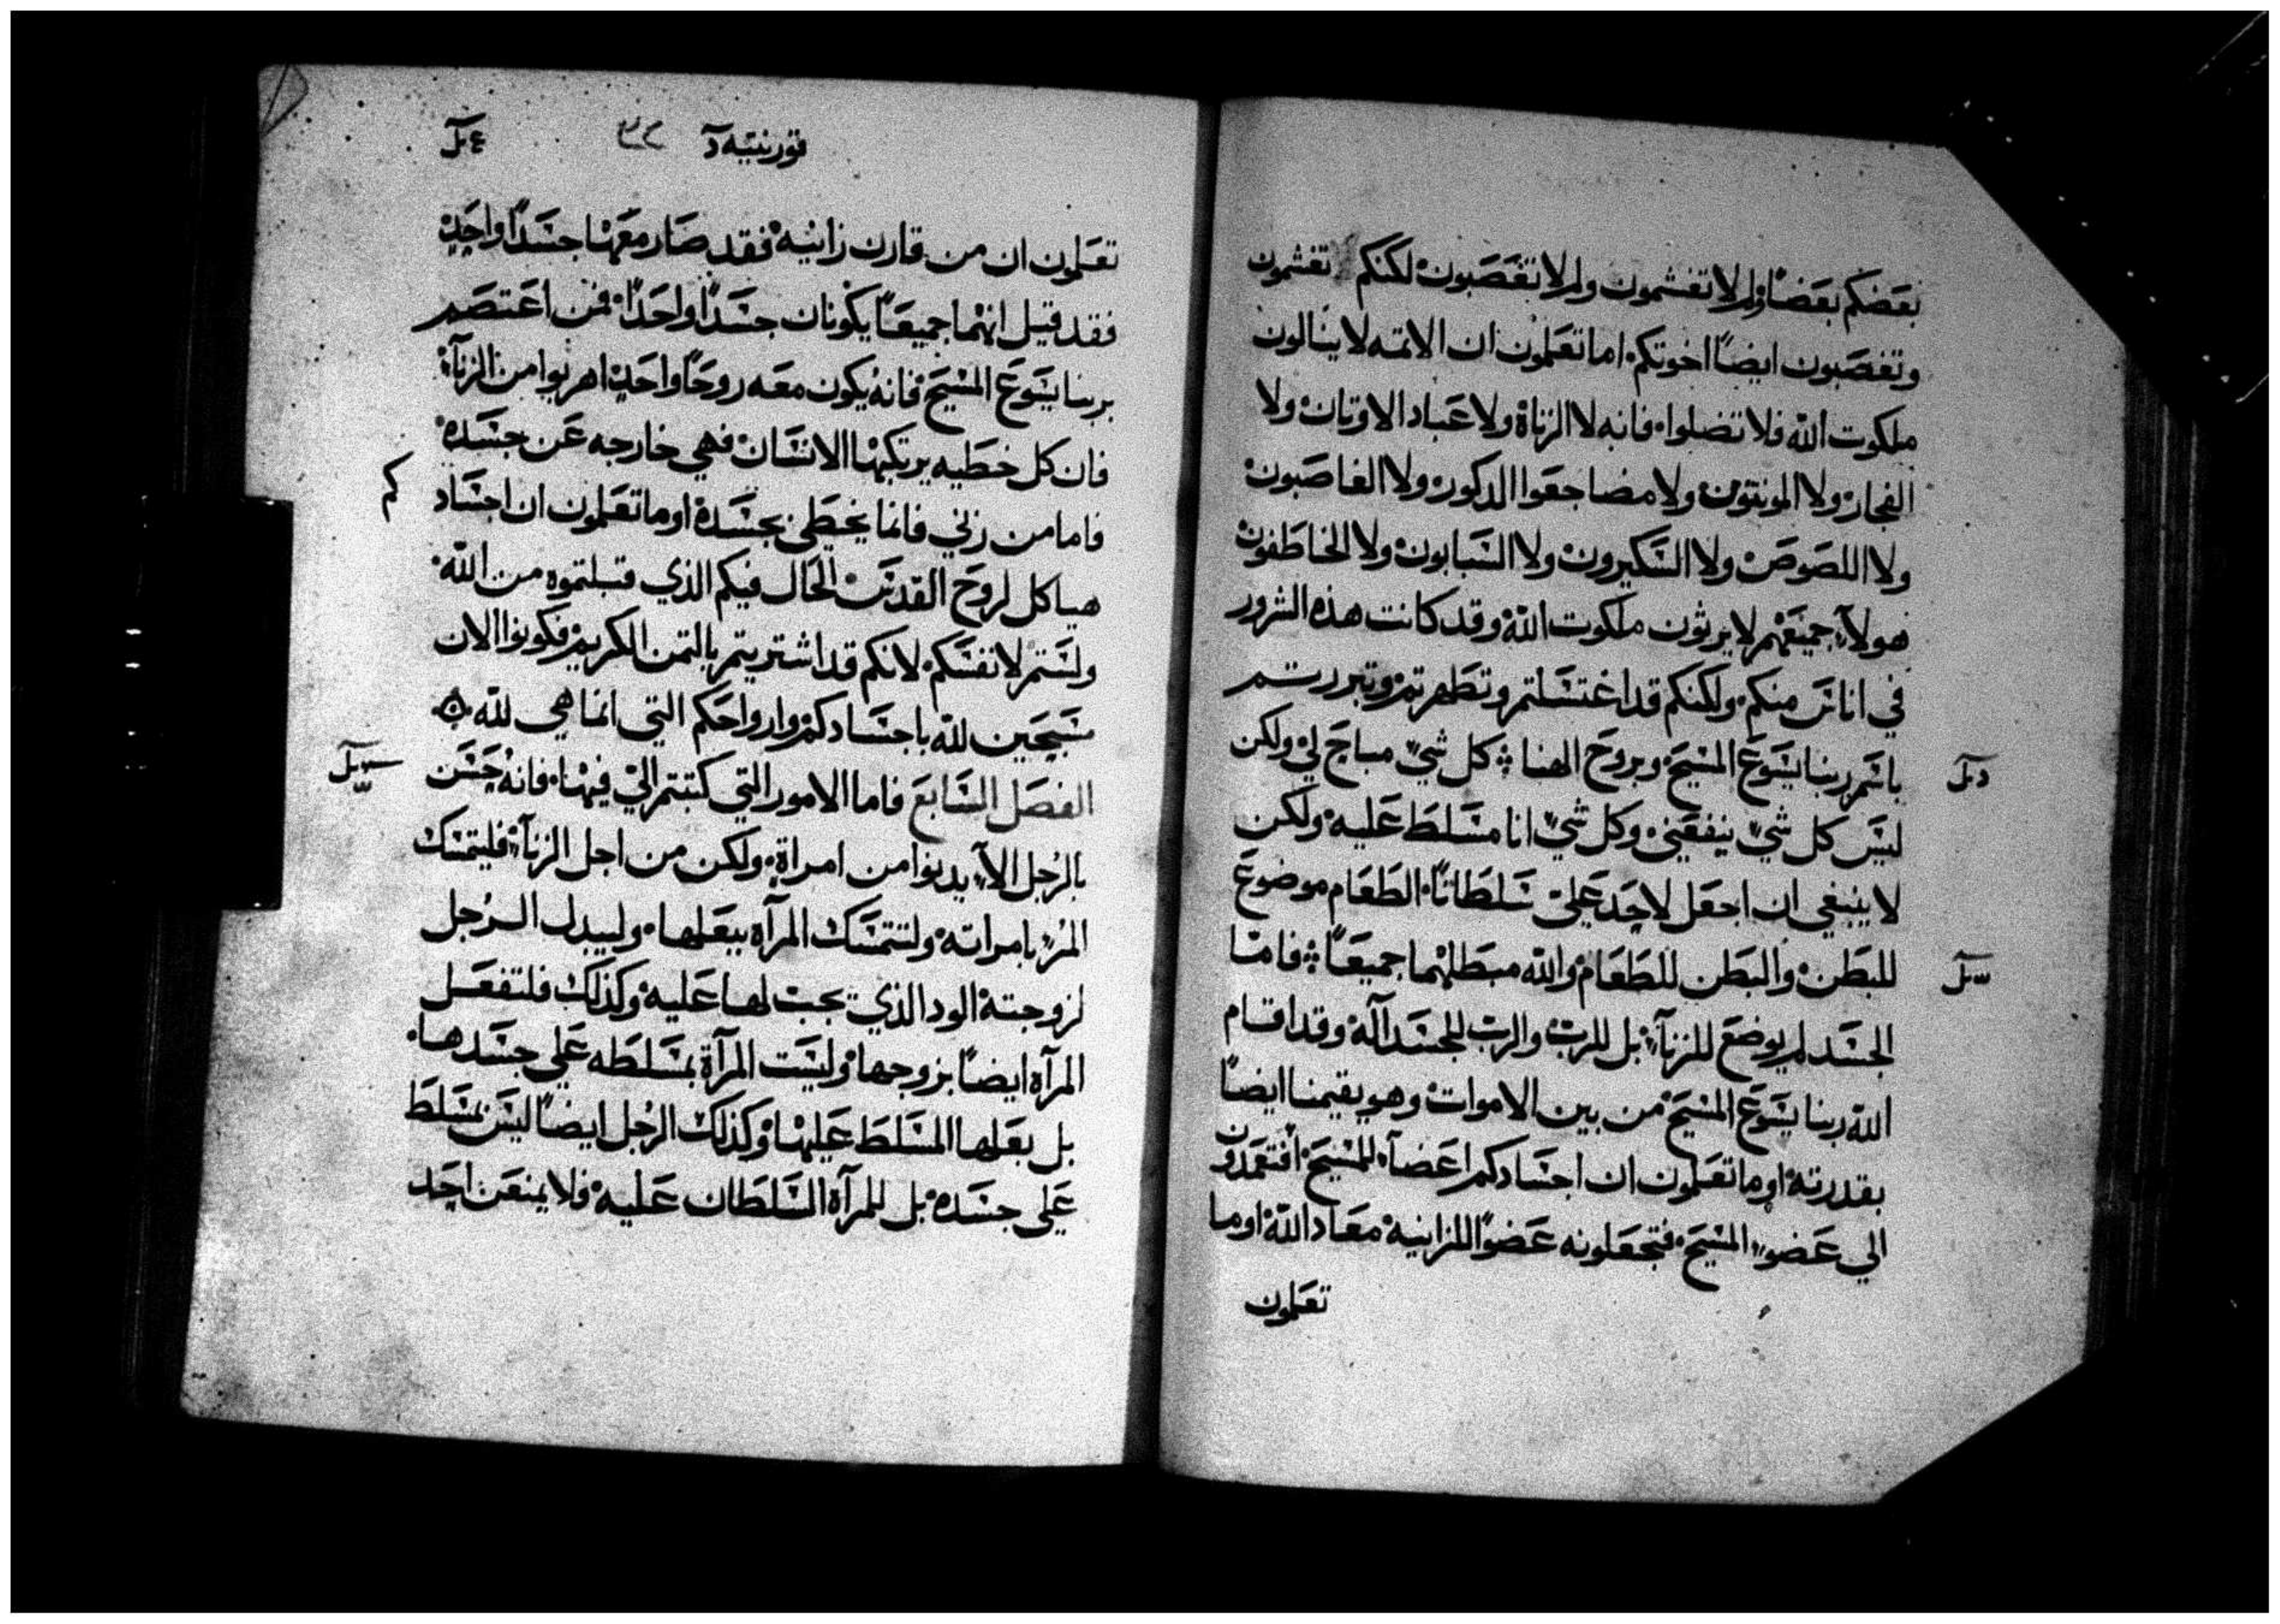 بعضكم بعضًا ولم لا تغشمون ولم لا تغصبون لكنكم تغشمون
وتغصبون ايضًا اخوتكم اما تعلمون ان الاتمه لا ينالون
ملكوت الله فلا تضلوا فانه لا الزناة ولا عباد الاوتان ولا
الفجار ولا المونتون ولا مضاجعوا الدكور ولا الغاصبون
ولا اللصوص ولا السكيرون ولا السبابون ولا الخاطفون
هولآء جميعهم لا يرثون ملكوت الله وقد كانت هذه الشرور
في اناس منكم ولكنكم قد اغتسلتم وتطهرتم وتبررتم
باسم ربنا يسوع المسيح وبروح الهنا كل شيء مباح لي ولكن
ليس كل شيء ينفعني وكل شيء انا مسلط عليه ولكن
لا ينبغي ان اجعل لاحد علي سلطانًا الطعام موضوع
للبطن والبطن للطعام والله مبطلهما جميعًا فامّا
الجسد لم يوضع للزنآء بل للرب والرب للجسد آلة وقد اقام
الله ربنا يسوع المسيح من بين الاموات وهو يقيمنا ايضًا
بقدرته اوما تعلمون ان اجسادكم اعضآء للمسيح افتعمدون
الي عضو المسيح فتجعلونه عضوًا للزانيه معاد الله اوما
تعلمون
قورنتيه
تعلمون ان من قارن زانيه فقد صار معها جسدًا واحد
فقد قيل انهما جميعًا يكونان جسدًا واحدًا فمن اعتصم
بربنا يسوع المسيح فانه يكون معه روحًا واحد اهربوا من الزنآء
فان كل خطيه يرتكبها الانسان فهي خارجه عن جسده
فاما من زني فانما يخطي بجسده اوما تعلمون ان اجساد
هياكل لروح القدس الحال فيكم الذي قبلتموه من الله
كم
ولستم لانفسكم لانكم قد اشتريتم بالتمن الكريم فكونوا الان
مسبحين لله باجسادكم وارواحكم التي انما هي لله
الفصل السابع فاما الامور التي كتبتم الي فيها فانه حسن
بالرجل الآ يدنوا من امراة ولكن من اجل الزنآء فليتمسك
المرء بامراته ولتتمسك المرآه ببعلها وليبدل الرجل
لزوجته الود الذي تجب لها عليه وكذلك فلتفعل
المرآه ايضًا بزوجها وليست المرآة بمسلطه علي جسدها
بل بعلها المسلط عليها وكذلك الرجل ايضًا ليس بمسلط
علي جسده بل للمرآة السلطان عليه فلا يمنعن احد